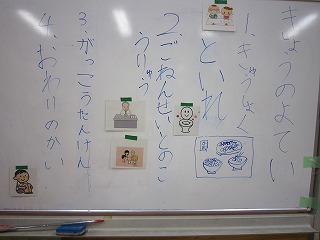 きょうのよてい
1.きゅうしょく
といれ
2.ごねんせいとのこうりゅう
3.がっこうたんけん
4.おわりのかい